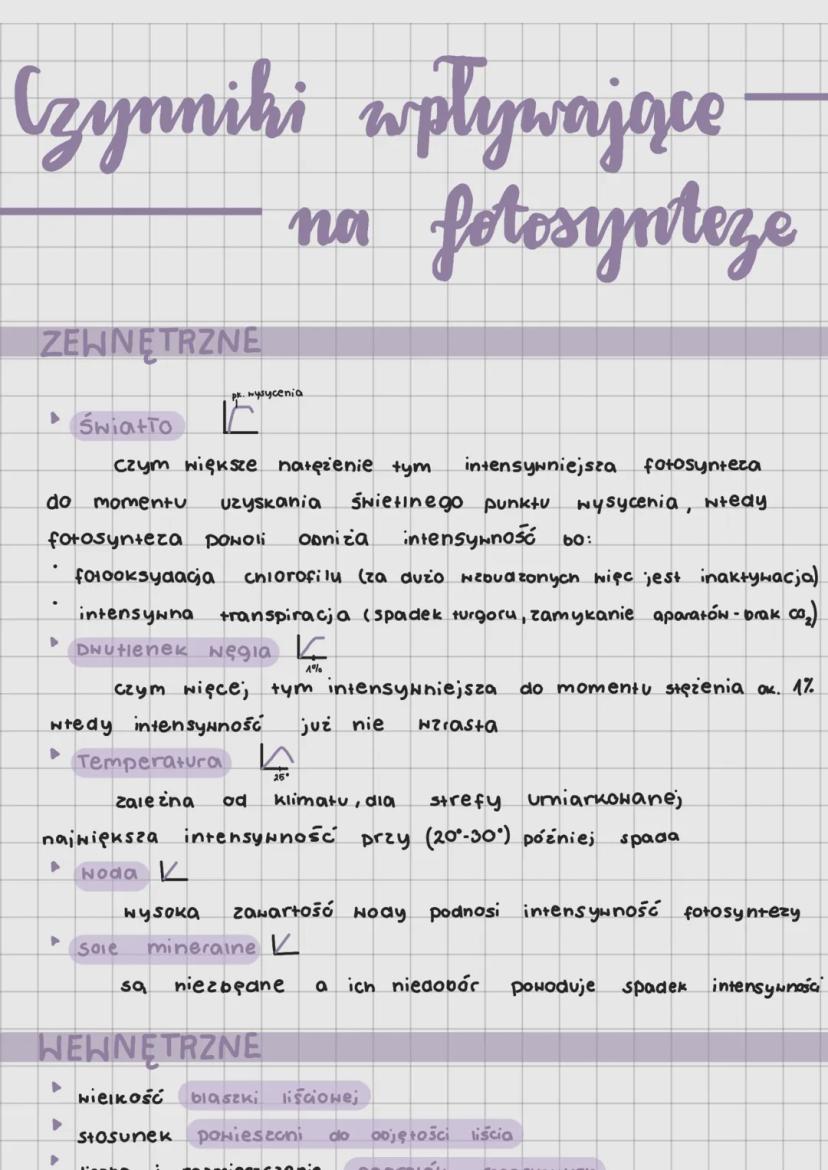 Czynniki wpływające
na fotosynteze
ZEWNĘTRZNE
pkt. wysycenia
światło
czym większe natężenie tym intensywniejsza fotosynteza
do momentu uzyskania świetlnego punktu wysycenia, wtedy
fotosynteza powoli obniża intensywność bo:
• fotooksydacja chlorofilu (za dużo wzbudzonych więc jest inaktywacja)
• intensywna transpiracja (spadek turgoru, zamykanie aparatów - brak CO₂)
Dwutlenek węgla
1%
czym więcej tym intensywniejsza do momentu stężenia ok. 1%
wtedy intensywność już nie wzrasta
Temperatura
25°
zależna od klimatu, dla strefy umiarkowanej
największa intensywność przy (20°-30°) później spada
woda
wysoka zawartość wody podnosi intensywność fotosyntezy
sole mineralne
są niezbędne a ich niedobór powoduje spadek intensywności
WEWNĘTRZNE
wielkość blaszki liściowej
stosunek powieszchni do objętości liścia